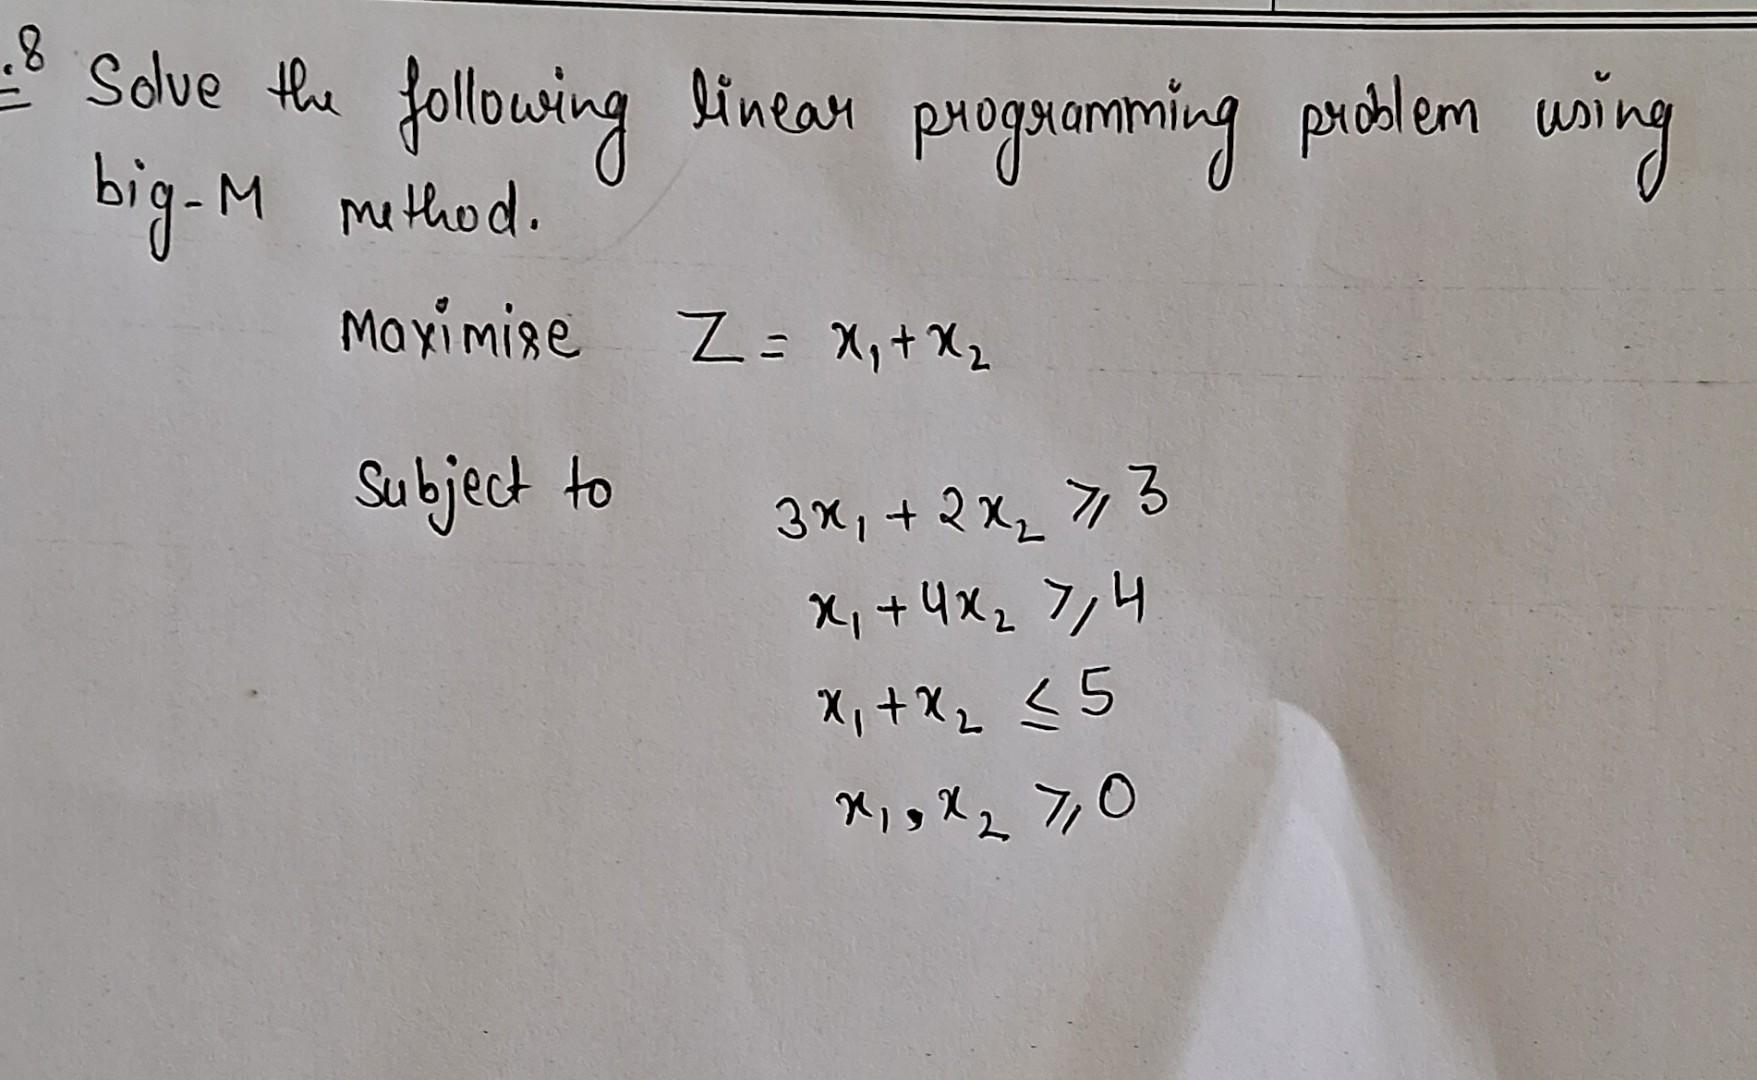 .8 Solve the following linear programming problem using
big-M method.
Maximise Z = x₁ + x₂
Subject to 3x₁ + 2x₂ ⩾ 3
x₁ + 4x₂ ⩾ 4
x₁ + x₂ ≤ 5
x₁, x₂ ⩾ 0